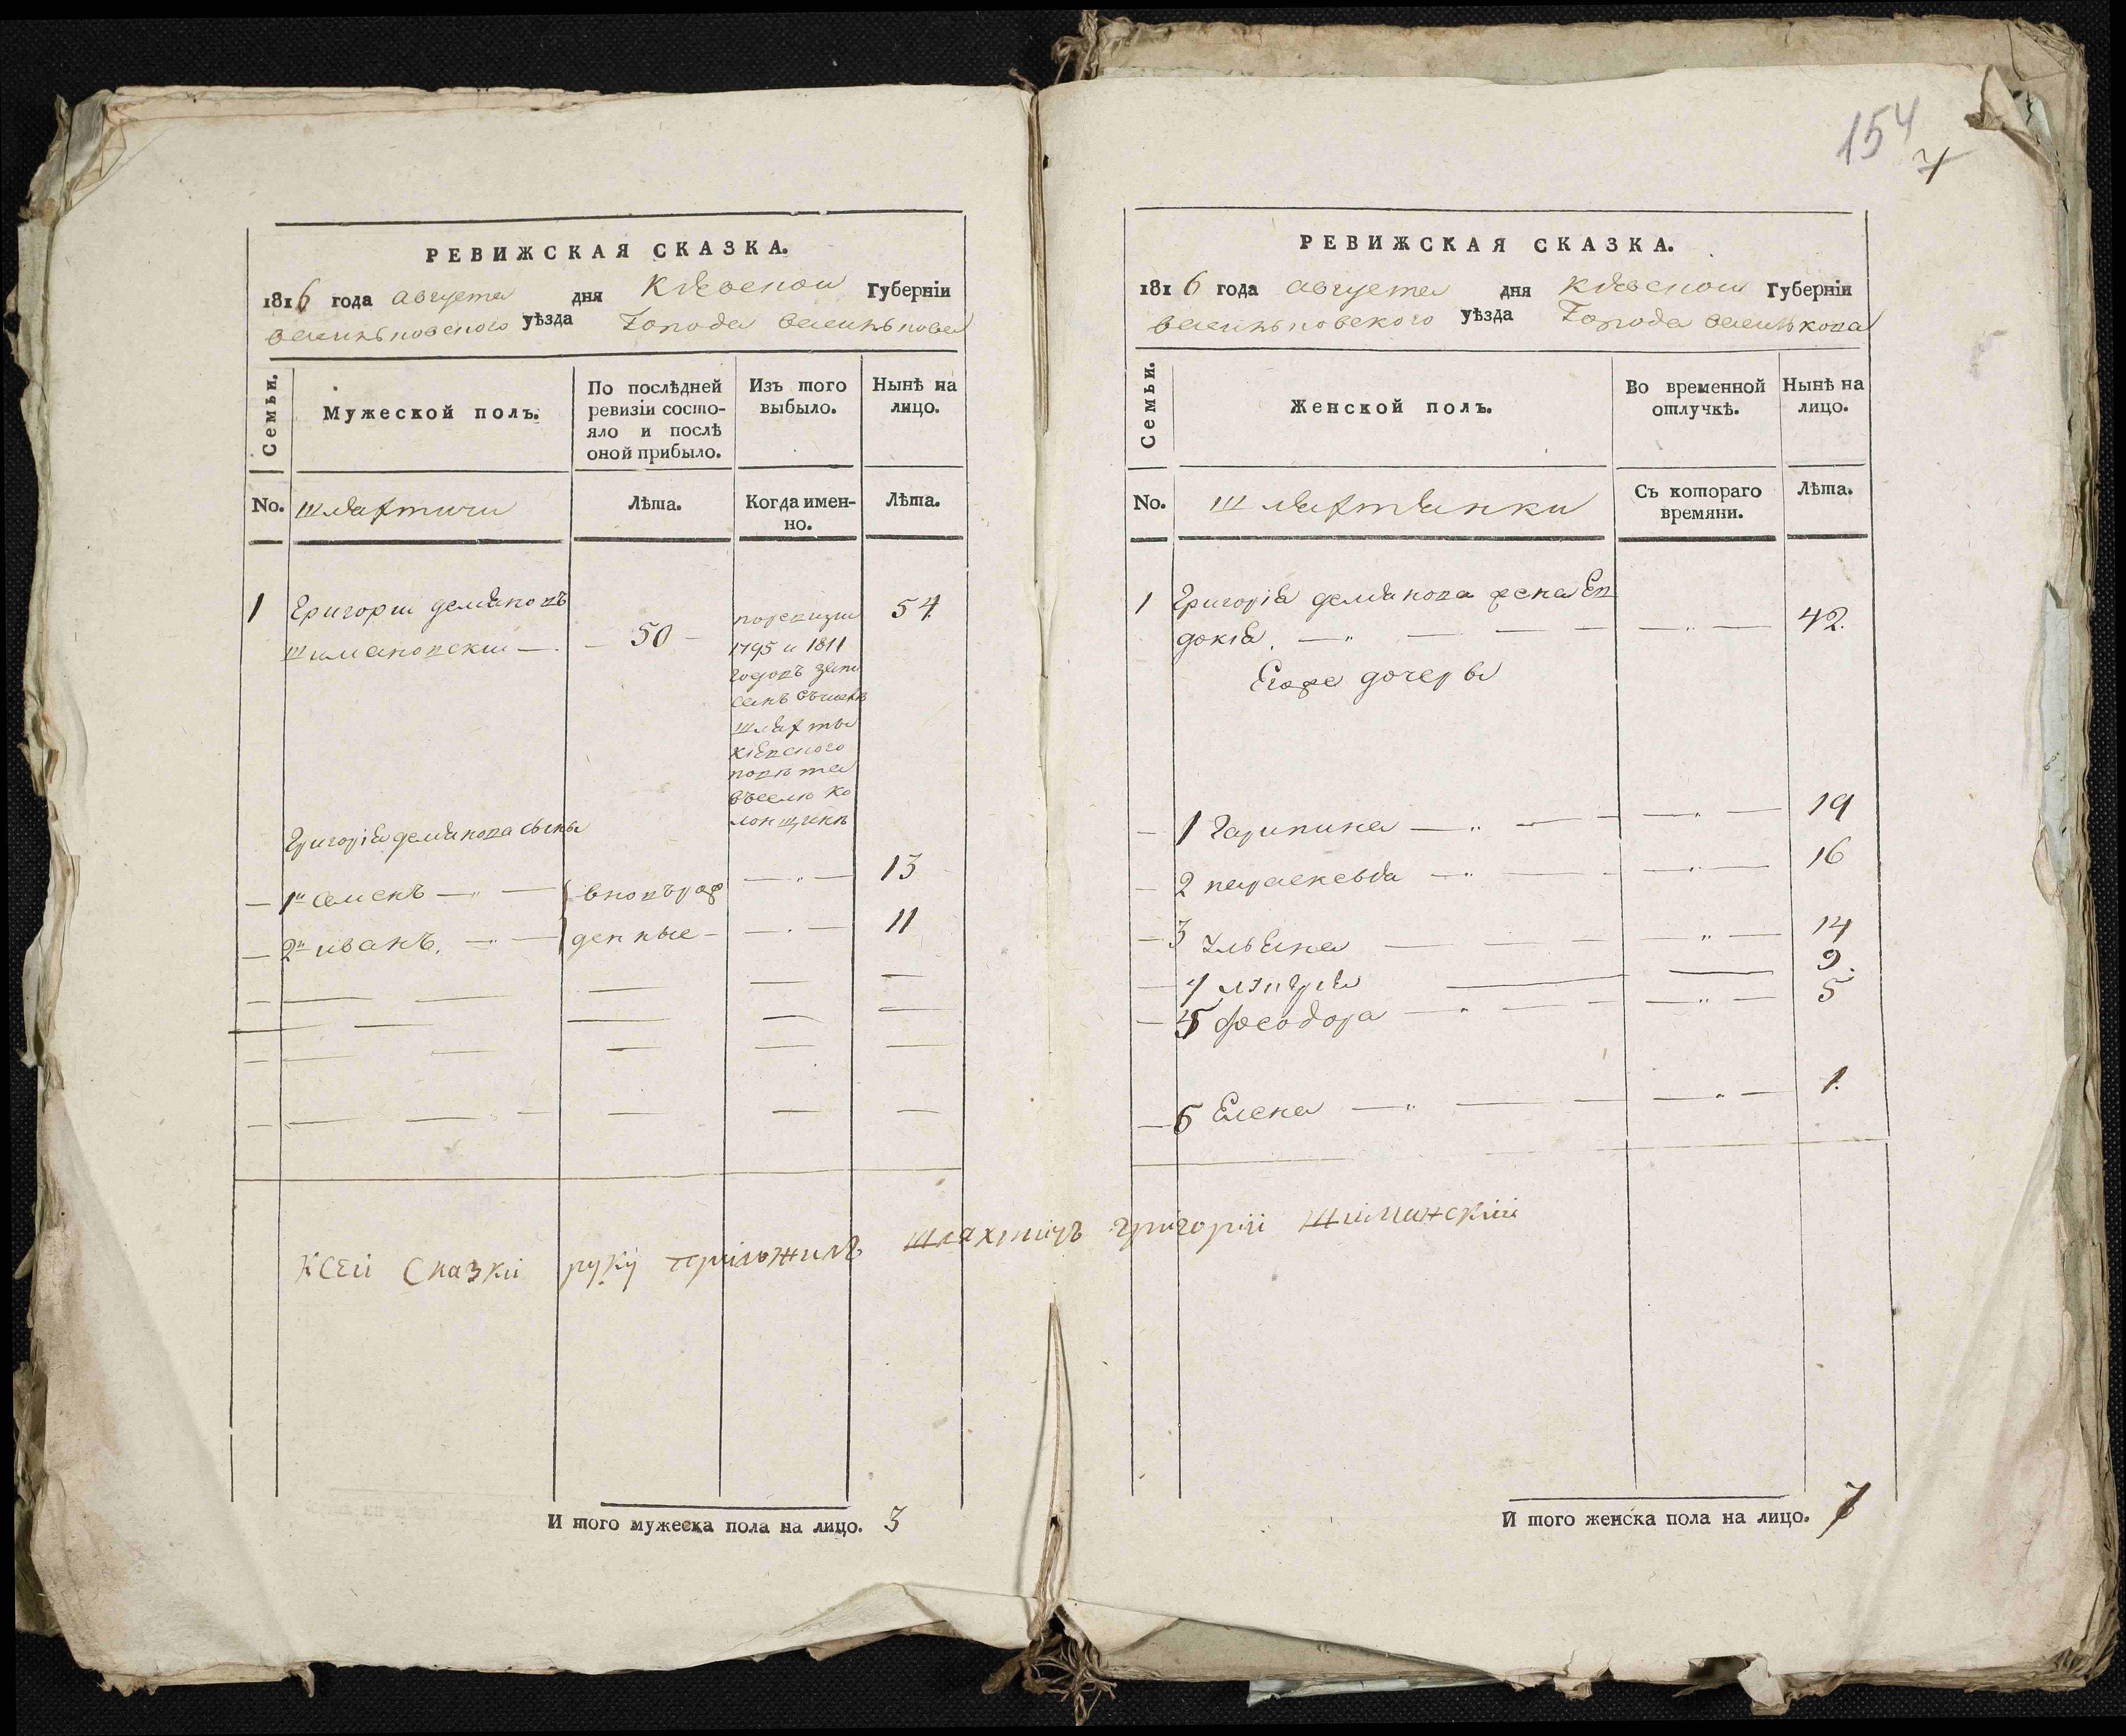 154
7
РЕВИЖСКАЯ СКАЗКА.
1816 года августа дня Кіевской Губерніи
васильковского уѣзда Города василькова
Семьи.
Мужеской полъ.
По послѣдней ревизіи состо-
яло и послѣ
оной прибыло.
Изъ того
выбыло.
Нынѣ на
лицо.
No. шляхтичи
Лѣта.
Когда имен-
но.
Лѣта.
1 Григори демяновъ
шимановски — 50 — 54
поревизи
1795 и 1811
годовъ запи
санъ
шляхты
кіевского
повѣта
въселѣ ко
лонщинѣ
Григорія демянова сыны
1й семенъ — вновьрож — 13
2й иванъ, — денные — 11
И того мужеска пола на лицо. 3
РЕВИЖСКАЯ СКАЗКА.
1816 года августа дня Кіевской Губерніи
васильковского уѣзда Города василькова
Семьи.
Женской полъ.
Во временной
отлучкѣ.
Нынѣ на
лицо.
No. шляхтянки
Съ котораго
времяни.
Лѣта.
1 Григорія демянова жена Ев
докія. — 42.
Егоже дочеры
1 Гарпина — 19
2 параскевья — 16
3 Ульяна — 14
4 — 9.
5 феодора — 5
6 Елена — 1.
И того женска пола на лицо. 7
Ксей Сказкй руку приложилъ шляхтичъ григорій Шиманскій